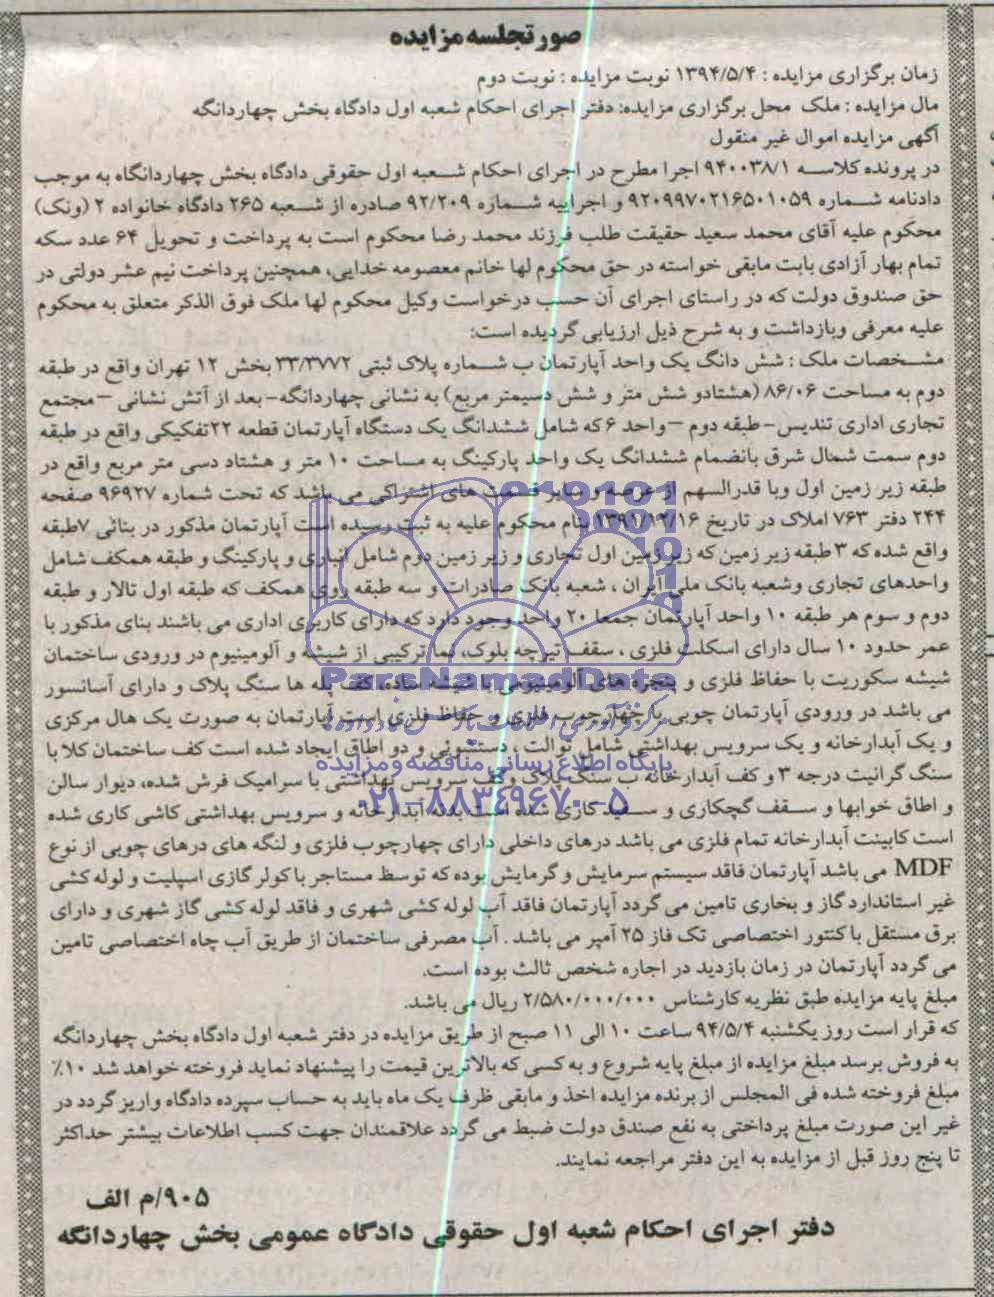 صورتجلسه مزایده
زمان برگزاری مزایده : ۱۳۹۴/۵/۴ نوبت مزایده : نوبت دوم
مال مزایده : ملک محل برگزاری مزایده: دفتر اجرای احکام شعبه اول دادگاه بخش چهاردانگه
آگهی مزایده اموال غیر منقول
در پرونده کلاسه ۹۴۰۰۳۸/۱ اجرا مطرح در اجرای احکام شعبه اول حقوقی دادگاه بخش چهاردانگاه به موجب
دادنامه شماره ۹۲۰۹۹۷۰۲۱۶۵۰۱۰۵۹ و اجراییه شماره ۹۲/۲۰۹ صادره از شعبه ۲۶۵ دادگاه خانواده ۲ (ونک)
محکوم علیه آقای محمد سعید حقیقت طلب فرزند محمد رضا محکوم است به پرداخت و تحویل ۶۴ عدد سکه
تمام بهار آزادی بابت مابقی خواسته در حق محکوم لها خانم معصومه خدایی، همچنین پرداخت نیم عشر دولتی در
حق صندوق دولت که در راستای اجرای آن حسب درخواست وکیل محکوم لها ملک فوق الذکر متعلق به محکوم
علیه معرفی وبازداشت و به شرح ذیل ارزیابی گردیده است:
مشخصات ملک : شش دانگ یک واحد آپارتمان ب شماره پلاک ثبتی ۳۳/۳۷۷۲ بخش ۱۲ تهران واقع در طبقه
دوم به مساحت ۸۶/۰۶ (هشتادو شش متر و شش دسیمتر مربع) به نشانی چهاردانگه- بعد از آتش نشانی – مجتمع
تجاری اداری تندیس- طبقه دوم – واحد ۶ که شامل ششدانگ یک دستگاه آپارتمان قطعه ۲۲ تفکیکی واقع در طبقه
دوم سمت شمال شرق بانضمام ششدانگ یک واحد پارکینگ به مساحت ۱۰ متر و هشتاد دسی متر مربع واقع در
طبقه زیر زمین اول وبا قدرالسهم از عرصه و سایر قسمت های اشتراکی می باشد که تحت شماره ۹۶۹۲۷ صفحه
۲۴۴ دفتر ۷۶۳ املاک در تاریخ ۱۳۹۱/۱۲/۱۶ بنام محکوم علیه به ثبت رسیده است آپارتمان مذکور در بنائی ۷طبقه
واقع شده که ۳ طبقه زیر زمین که زیر زمین اول تجاری و زیر زمین دوم شامل انباری و پارکینگ و طبقه همکف شامل
واحدهای تجاری وشعبه بانک ملی ایران ، شعبه بانک صادرات و سه طبقه روی همکف که طبقه اول تالار و طبقه
دوم و سوم هر طبقه ۱۰ واحد آپارتمان جمعا ۲۰ واحد وجود دارد که دارای کاربری اداری می باشند بنای مذکور با
عمر حدود ۱۰ سال دارای اسکلت فلزی ، سقف تیرچه بلوک، نما ترکیبی از شیشه و آلومینیوم در ورودی ساختمان
شیشه سکوریت با حفاظ فلزی و پنجره های آلومینیومی با شیشه ساده، کف پله ها سنگ پلاک و دارای آسانسور
می باشد در ورودی آپارتمان چوبی با چهارچوب فلزی و حفاظ فلزی است آپارتمان به صورت یک هال مرکزی
و یک آبدارخانه و یک سرویس بهداشتی شامل توالت ، دستشوئی و دو اطاق ایجاد شده است کف ساختمان کلا با
سنگ گرانیت درجه ۳ و کف آبدارخانه ب سنگ پلاک وکف سرویس بهداشتی با سرامیک فرش شده، دیوار سالن
و اطاق خوابها و سقف گچکاری و سفید کاری شده است بدنه آبدارخانه و سرویس بهداشتی کاشی کاری شده
است کابینت آبدارخانه تمام فلزی می باشد درهای داخلی دارای چهارچوب فلزی و لنگه های درهای چوبی از نوع
MDF می باشد آپارتمان فاقد سیستم سرمایش و گرمایش بوده که توسط مستاجر با کولر گازی اسپلیت و لوله کشی
غیر استاندارد گاز و بخاری تامین می گردد آپارتمان فاقد آب لوله کشی شهری و فاقد لوله کشی گاز شهری و دارای
برق مستقل با کنتور اختصاصی تک فاز ۲۵ آمپر می باشد . آب مصرفی ساختمان از طریق آب چاه اختصاصی تامین
می گردد آپارتمان در زمان بازدید در اجاره شخص ثالث بوده است.
مبلغ پایه مزایده طبق نظریه کارشناس ۲/۵۸۰/۰۰۰/۰۰۰ ریال می باشد.
که قرار است روز یکشنبه ۹۴/۵/۴ ساعت ۱۰ الی ۱۱ صبح از طریق مزایده در دفتر شعبه اول دادگاه بخش چهاردانگه
به فروش برسد مبلغ مزایده از مبلغ پایه شروع و به کسی که بالاترین قیمت را پیشنهاد نماید فروخته خواهد شد ۱۰٪
مبلغ فروخته شده فی المجلس از برنده مزایده اخذ و مابقی ظرف یک ماه باید به حساب سپرده دادگاه واریز گردد در
غیر این صورت مبلغ پرداختی به نفع صندق دولت ضبط می گردد علاقمندان جهت کسب اطلاعات بیشتر حداکثر
تا پنج روز قبل از مزایده به این دفتر مراجعه نمایند.
۹۰۵/م الف
دفتر اجرای احکام شعبه اول حقوقی دادگاه عمومی بخش چهاردانگه
ParsNamadData
پایگاه اطلاع رسانی مناقصه و مزایده
۰۲۱-۸۸۳۴۹۶۷۰-۵